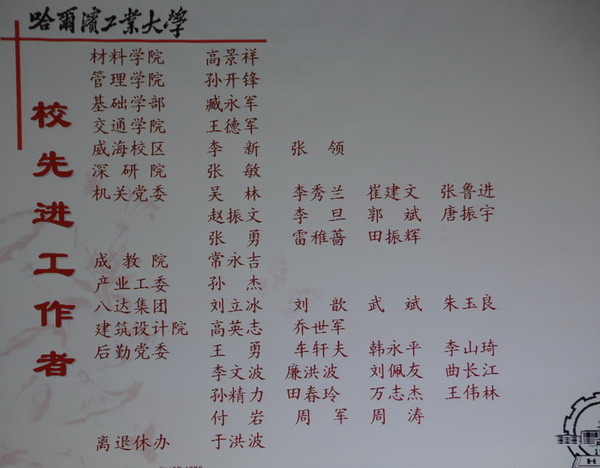 哈爾濱工業大學
校先进工作者
材料学院 高景祥
管理学院 孙开锋
基础学部 臧永军
交通学院 王德军
威海校区 李新 张领
深研院 张敏
机关党委 吴林 李秀兰 崔建文 张鲁进
赵振文 李旦 郭斌 唐振宇
张勇 雷稚蔷 田振辉
成教院 常永吉
产业工委 孙杰
八达集团 刘立冰 刘歆 武斌 朱玉良
建筑设计院 高英志 乔世军
后勤党委 王勇 车轩夫 韩永平 李山琦
李文波 廉洪波 刘佩友 曲长江
孙精力 田春玲 万志杰 王伟林
付岩 周军 周涛
离退休办 于洪波